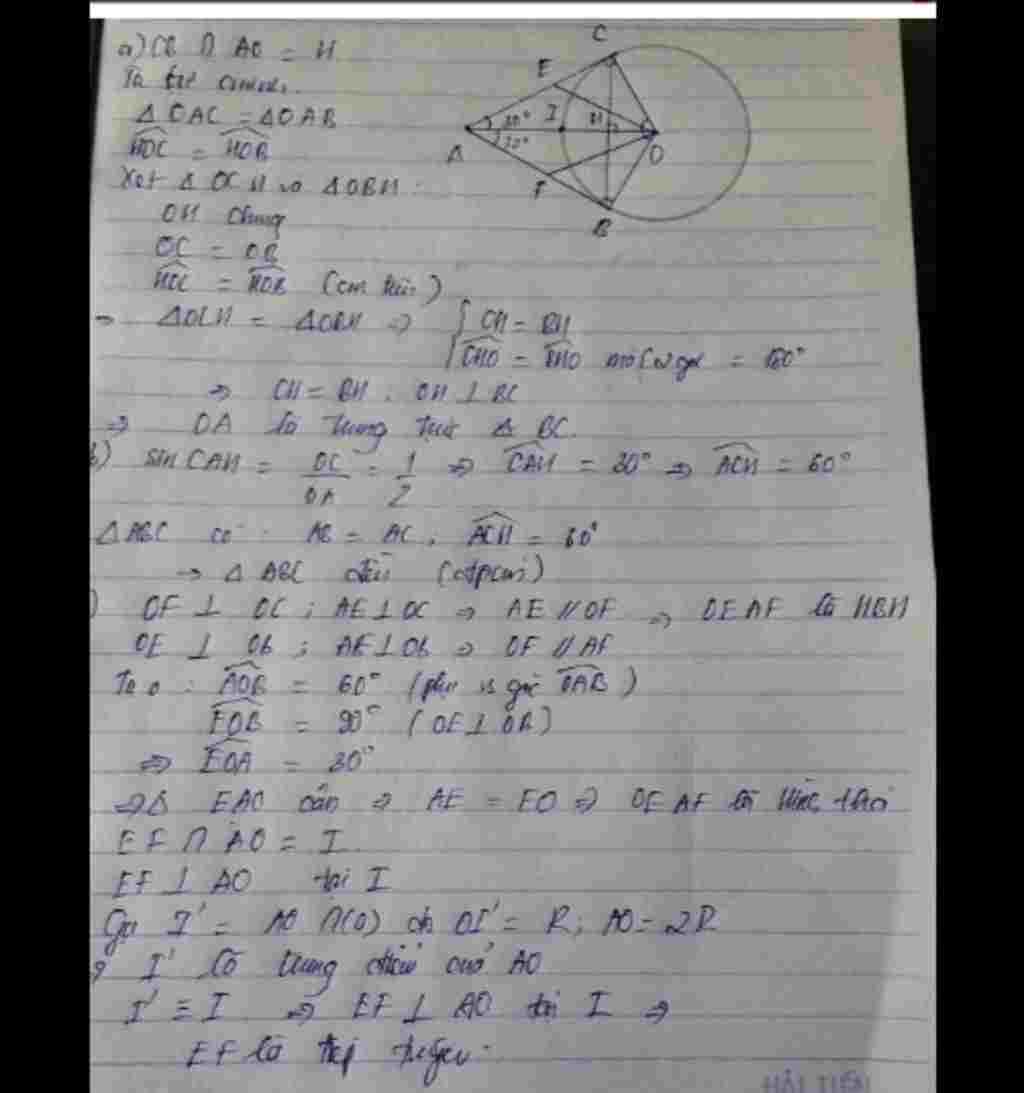 a) CB ∩ AO = H
Ta
Δ OAC = Δ OAB
HOC = HOB
Xét Δ OCH và Δ OBH :
OH chung
OC = OB
HOC = HOB (cm trên)
→ ΔOCH = ΔOBH => { CH = BH
CHO = BHO mà góc = 180°
=> CH = BH , OH ⊥ BC
=> OA là trung trực Δ BC.
b) sin CAH = OC/OA = 1/2 => CAH = 30° => ACH = 60°
ΔABC có : AB = AC , ACH = 60°
→ Δ ABC đều (đpcm)
) OF ⊥ OC ; AE ⊥ OC => AE // OF => OEAF là HBH
OE ⊥ OB ; AF ⊥ OB => OF // AF
Ta : AOB = 60° (phụ góc OAB)
EOB = 90° (OE ⊥ OB)
=> EOA = 30°
=> Δ EAO cân => AE = EO => OEAF là hình thoi
EF ∩ AO = I
EF ⊥ AO tại I
Gọi I' = AO ∩ (O) OI' = R ; AO = 2R
I' là trung điểm của AO
I' ≡ I => EF ⊥ AO tại I =>
EF là tiếp tuyến.
C
E
I
H
30°
30°
A
O
F
B
HẢI TIẾN